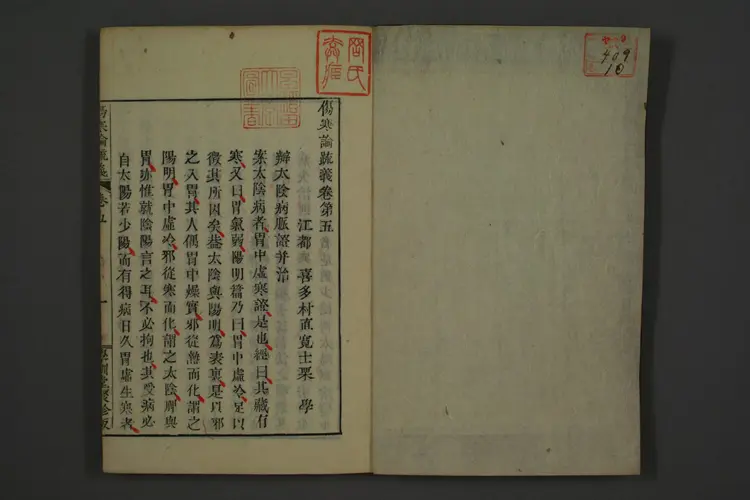 409
10
岡氏
傷寒論疏義卷第五
江都 喜多村直寬士栗 學
辨太陰病脈證并治
案太陰病者胃中虛寒證是也經曰其藏有
寒又曰胃氣弱陽明篇乃曰胃中虛冷足以
徵其所因矣蓋太陰與陽明爲表裏是以邪
之入胃其人偶胃中燥實邪從熱而化謂之
陽明胃中虛冷邪從寒而化謂之太陰脾與
胃亦惟就陰陽言之耳不必拘也其受病必
自太陽若少陽而有得病日久胃虛生寒者
傷寒論疏義 卷五 一